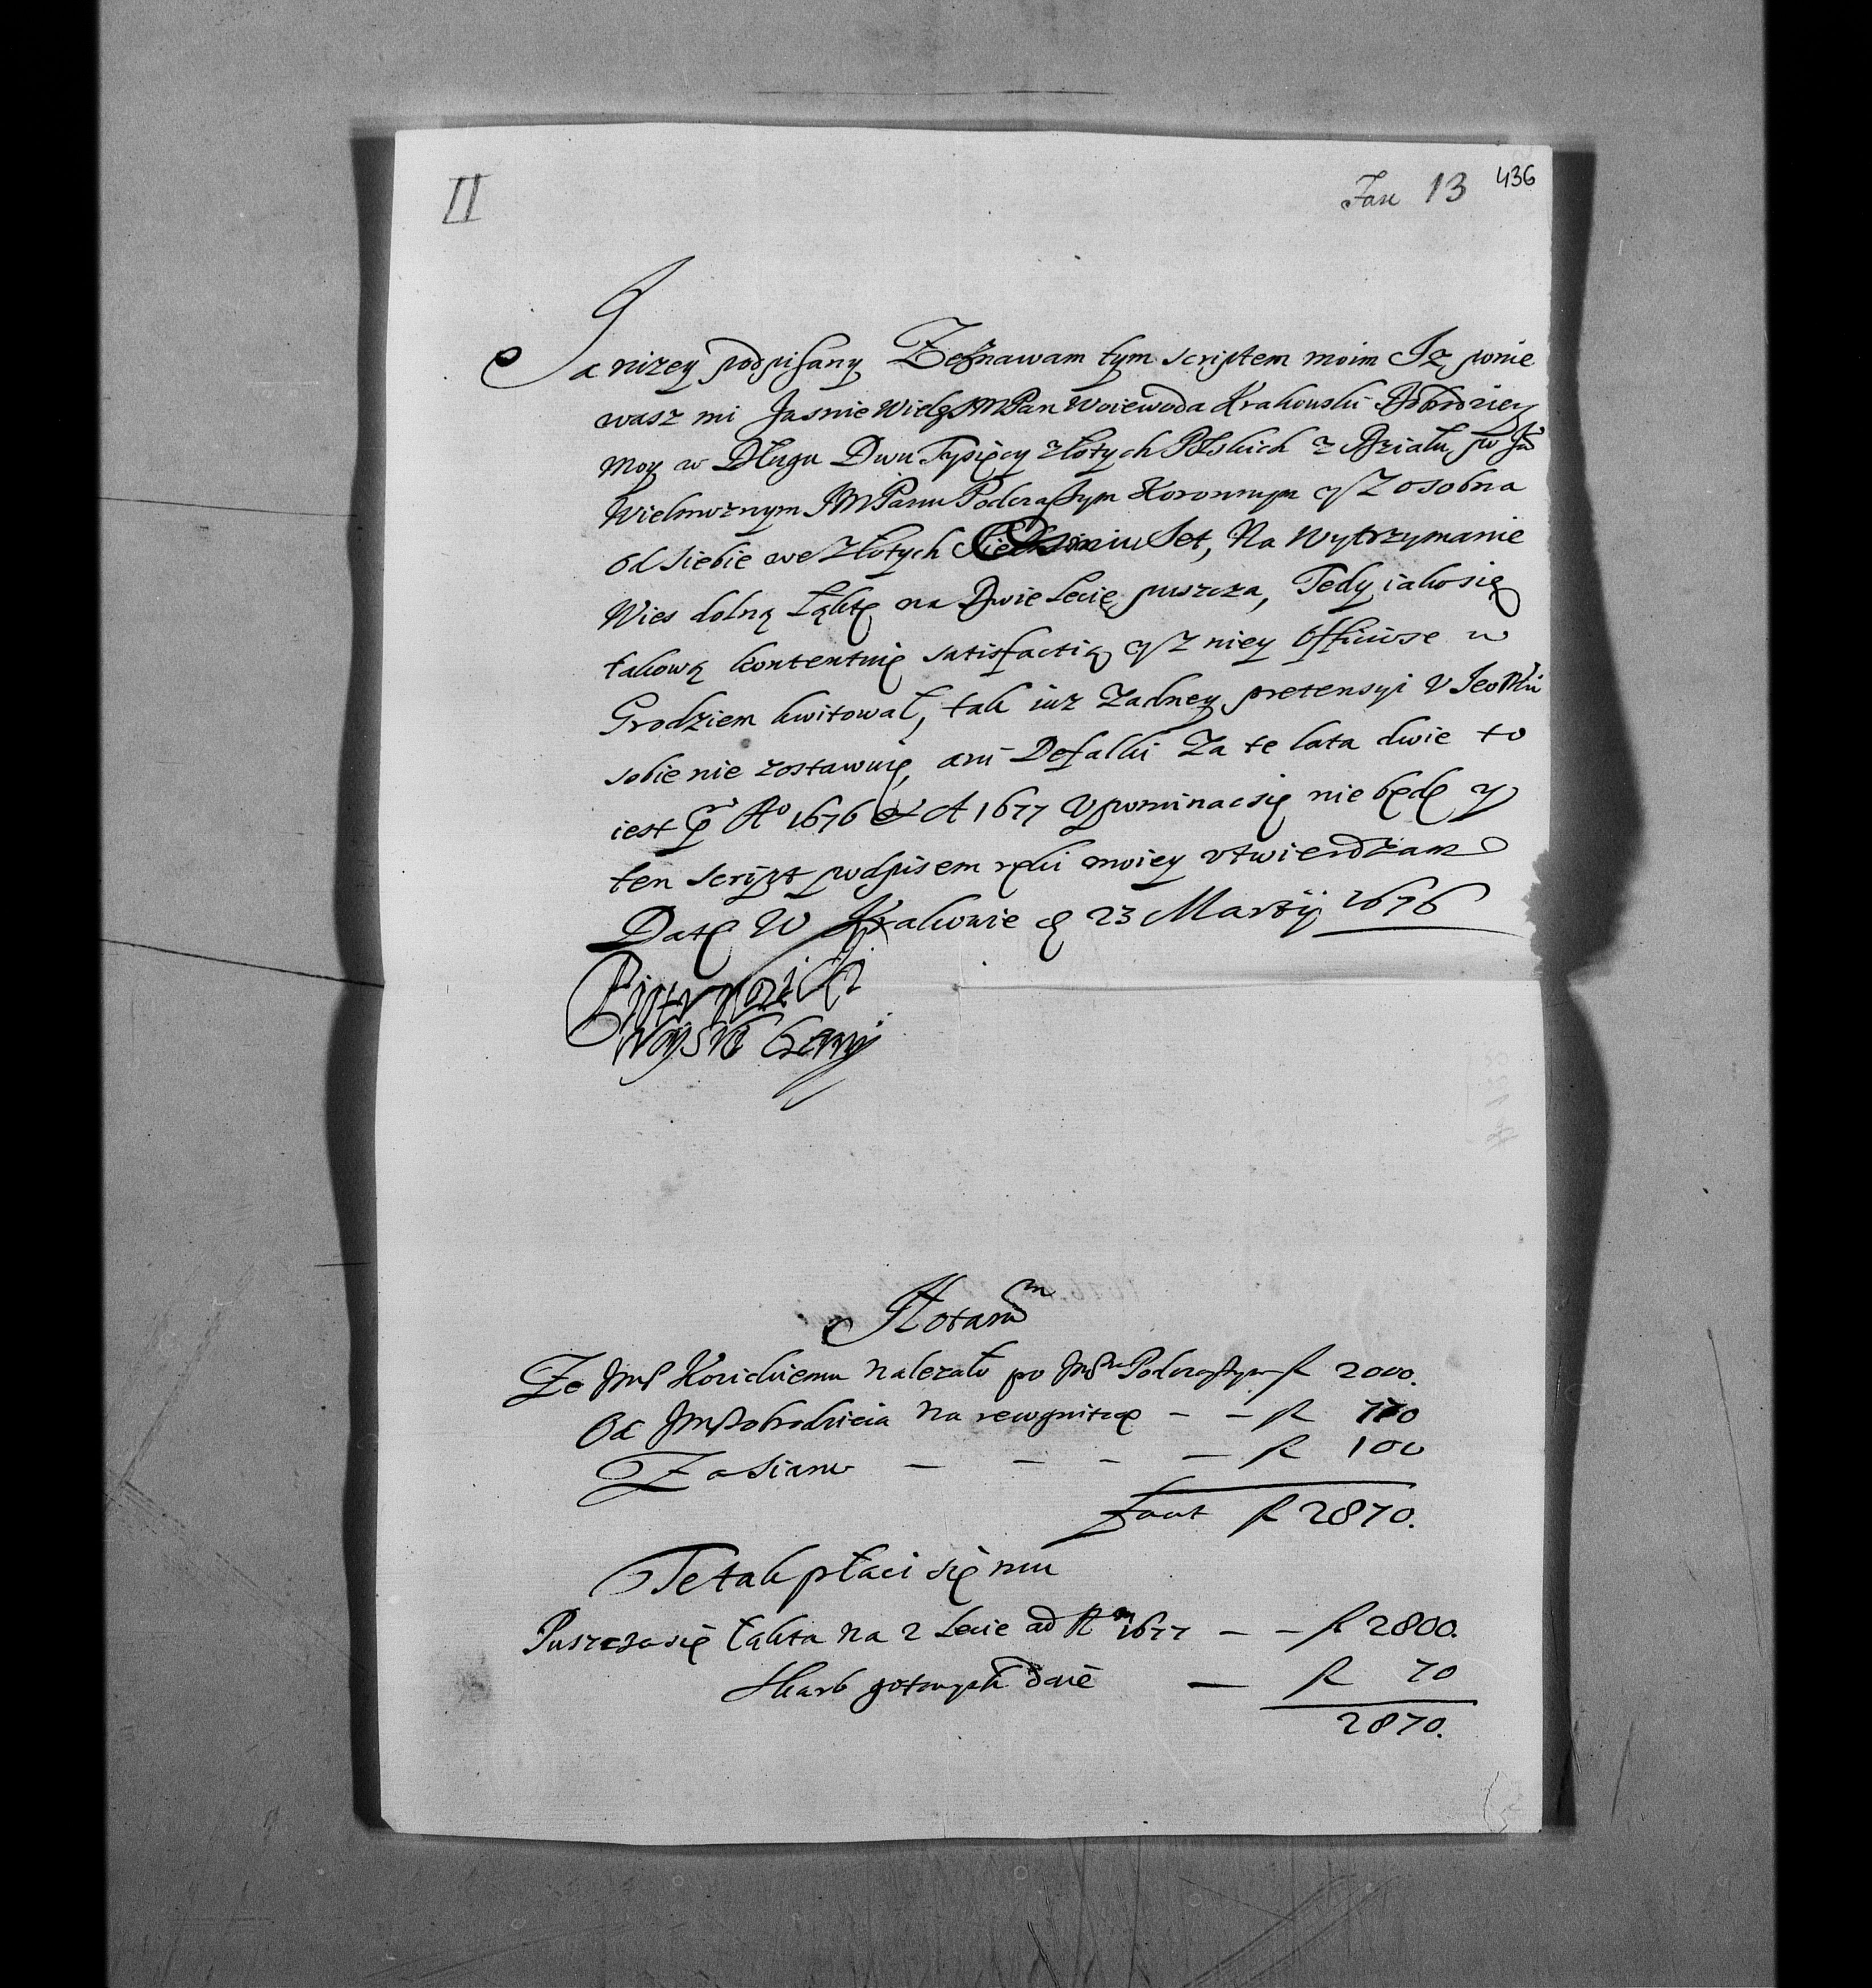 II
Fasc 13 436
Ja nizey podpisany Zeznawam tym scriptem moim Iz ponie
wasz mi Jasnie Wielg JMPan Woiewoda Krakowski Dobrodziey
moy w Długu Dwu Tysięcy złotych Polskich z Działu po Ja
Wielmoznym JMPanu Podczaszym Koronnym y z osobna
od siebie we Złotych Osmiu Set, Na wytrzymanie
Wies dolną Łąktę na Dwie Lecie puszcza, Tedy iako się
takową kontentuię satisfactią y z niey officiose w
Grodziem kwitował, tak iuz zadney pretensyi V Jeo
sobie nie zostawuię, ani Defalki Za te lata dwie to
iest Ao 1676 et A 1677 Vpominac się nie będę y
ten script podpisem ręki moiey vtwierdzam
Datę W Krakowie d 23 Martij 1676
Piotr
Woyski
Notand
Ze JmP Kozickiemu nalezało po JmPu Podczaszym fl 2000.
Od JmP Dobrodzieia na recognitię - - fl 770
Za Siano - - - - fl 100
facit fl 2870.
Te tak płaci się mu
Puszcza się Łąkta na 2 Lecie ad Am 1677 - - fl 2800.
Skarb gotowych daie - fl 70
2870.